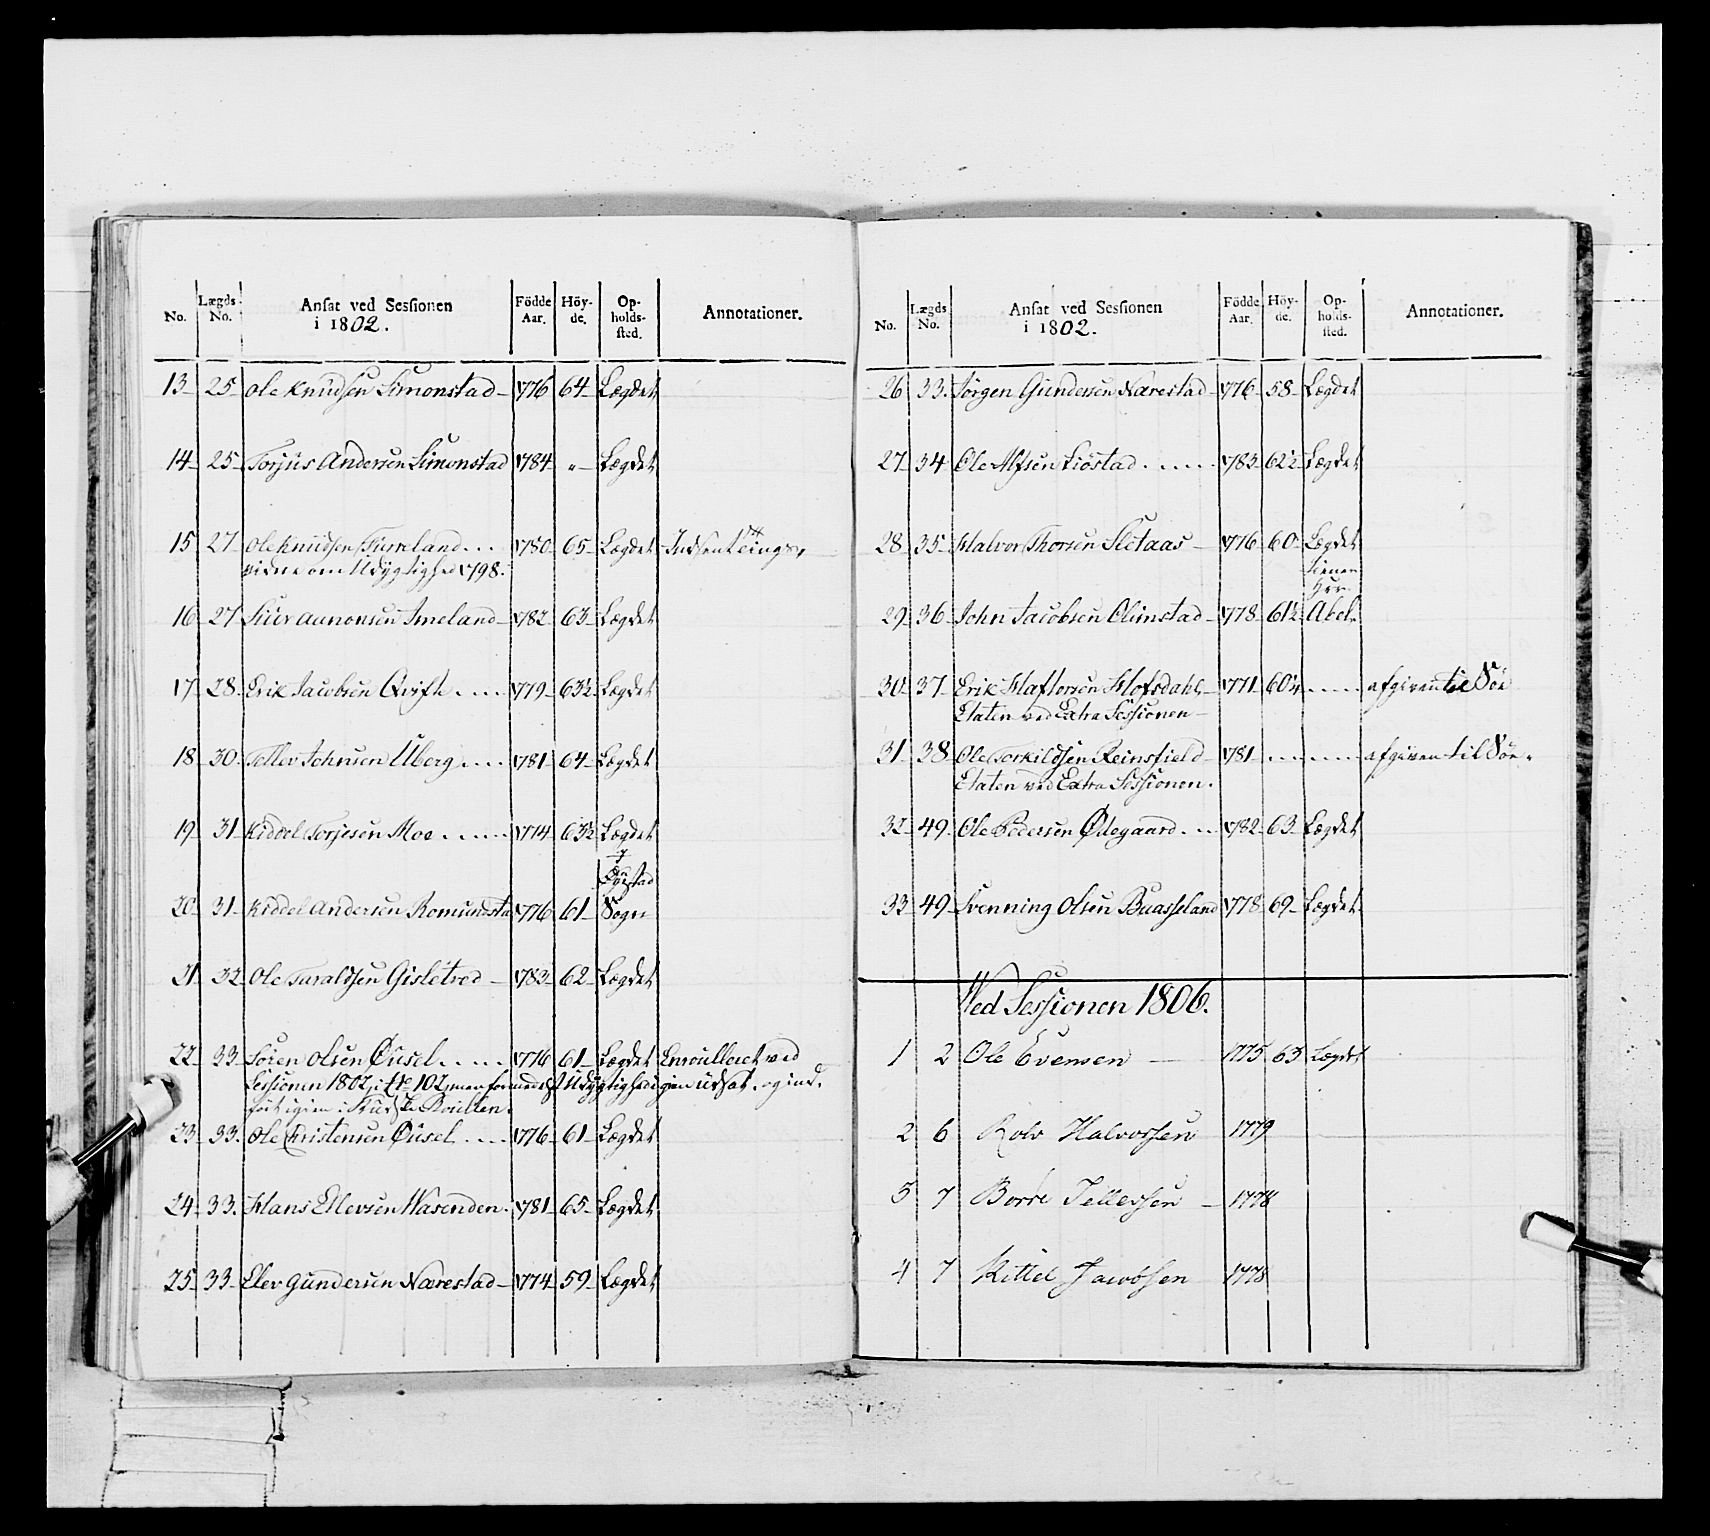 No. Lægds No. Ansat ved Sessionen i 1802. Födde Aar. Höyde. Opholdssted. Annotationer.
13 25 Ole Knudsen Simonstad 1776 64 Lægdet
14 25 Torjus Andersen Simonstad 1784 „ Lægdet
15 27 Ole Knudsen 1780 65 Lægdet Indsent
om Udygtighed 1798.
16 27 Siur Aunonsen Imeland 1782 63 Lægdet
17 28 Erik Jacobsen Qvifte 1779 63½ Lægdet
18 30 Tellev Johnsen Uberg 1781 64 Lægdet
19 31 Kiddel Torjesen Moe 1774 63½ Lægdet
20 31 Kiddel Andersen Romundsta 1776 61 Sogn
21 32 Ole Taraldsen Gisletved 1783 62 Lægdet
22 33 Sören Olsen Öusel 1776 61 Lægdet Enroulleret ved
Sessionen 1802, i No 102, men formedelst Udygtighed igien udsat, og ind-
fört igien i Roullen.
23 33 Ole Christensen Öusel 1776 61 Lægdet
24 33 Hans Ellevsen Wasenden 1781 65 Lægdet
25 33 Elev Gundersen Narestad 1774 59 Lægdet
No. Lægds No. Ansat ved Sessionen i 1802. Födde Aar. Höyde. Opholdssted. Annotationer.
26 33 Jörgen Gundersen Narestad 1776 58 Lægdet
27 34 Ole Alfsen Liöstad 1783 62½ Lægdet
28 35 Halvor Thorsen Sletaas 1776 60 Lægdet
29 36 John Jacobsen Olimstad 1778 61½
30 37 Erik Haftorsen Hofsdahl 1771 60¼ afgiven til Söe
Etaten ved Extra Sessionen
31 38 Ole Torkildsen Reinsfield 1781 afgiven til Söe-
Etaten ved Extra Sessionen.
32 49 Ole Pedersen Ödegaard 1782 63 Lægdet
33 49 Svenning Olsen Buasseland 1778 69 Lægdet
Ved Sessionen 1806.
1 2 Ole Evensen 1775 63 Lægdet
2 6 Rolv Halvorsen 1779
3 7 Borre Tellefsen 1778
4 7 Kittel Jacobsen 1778